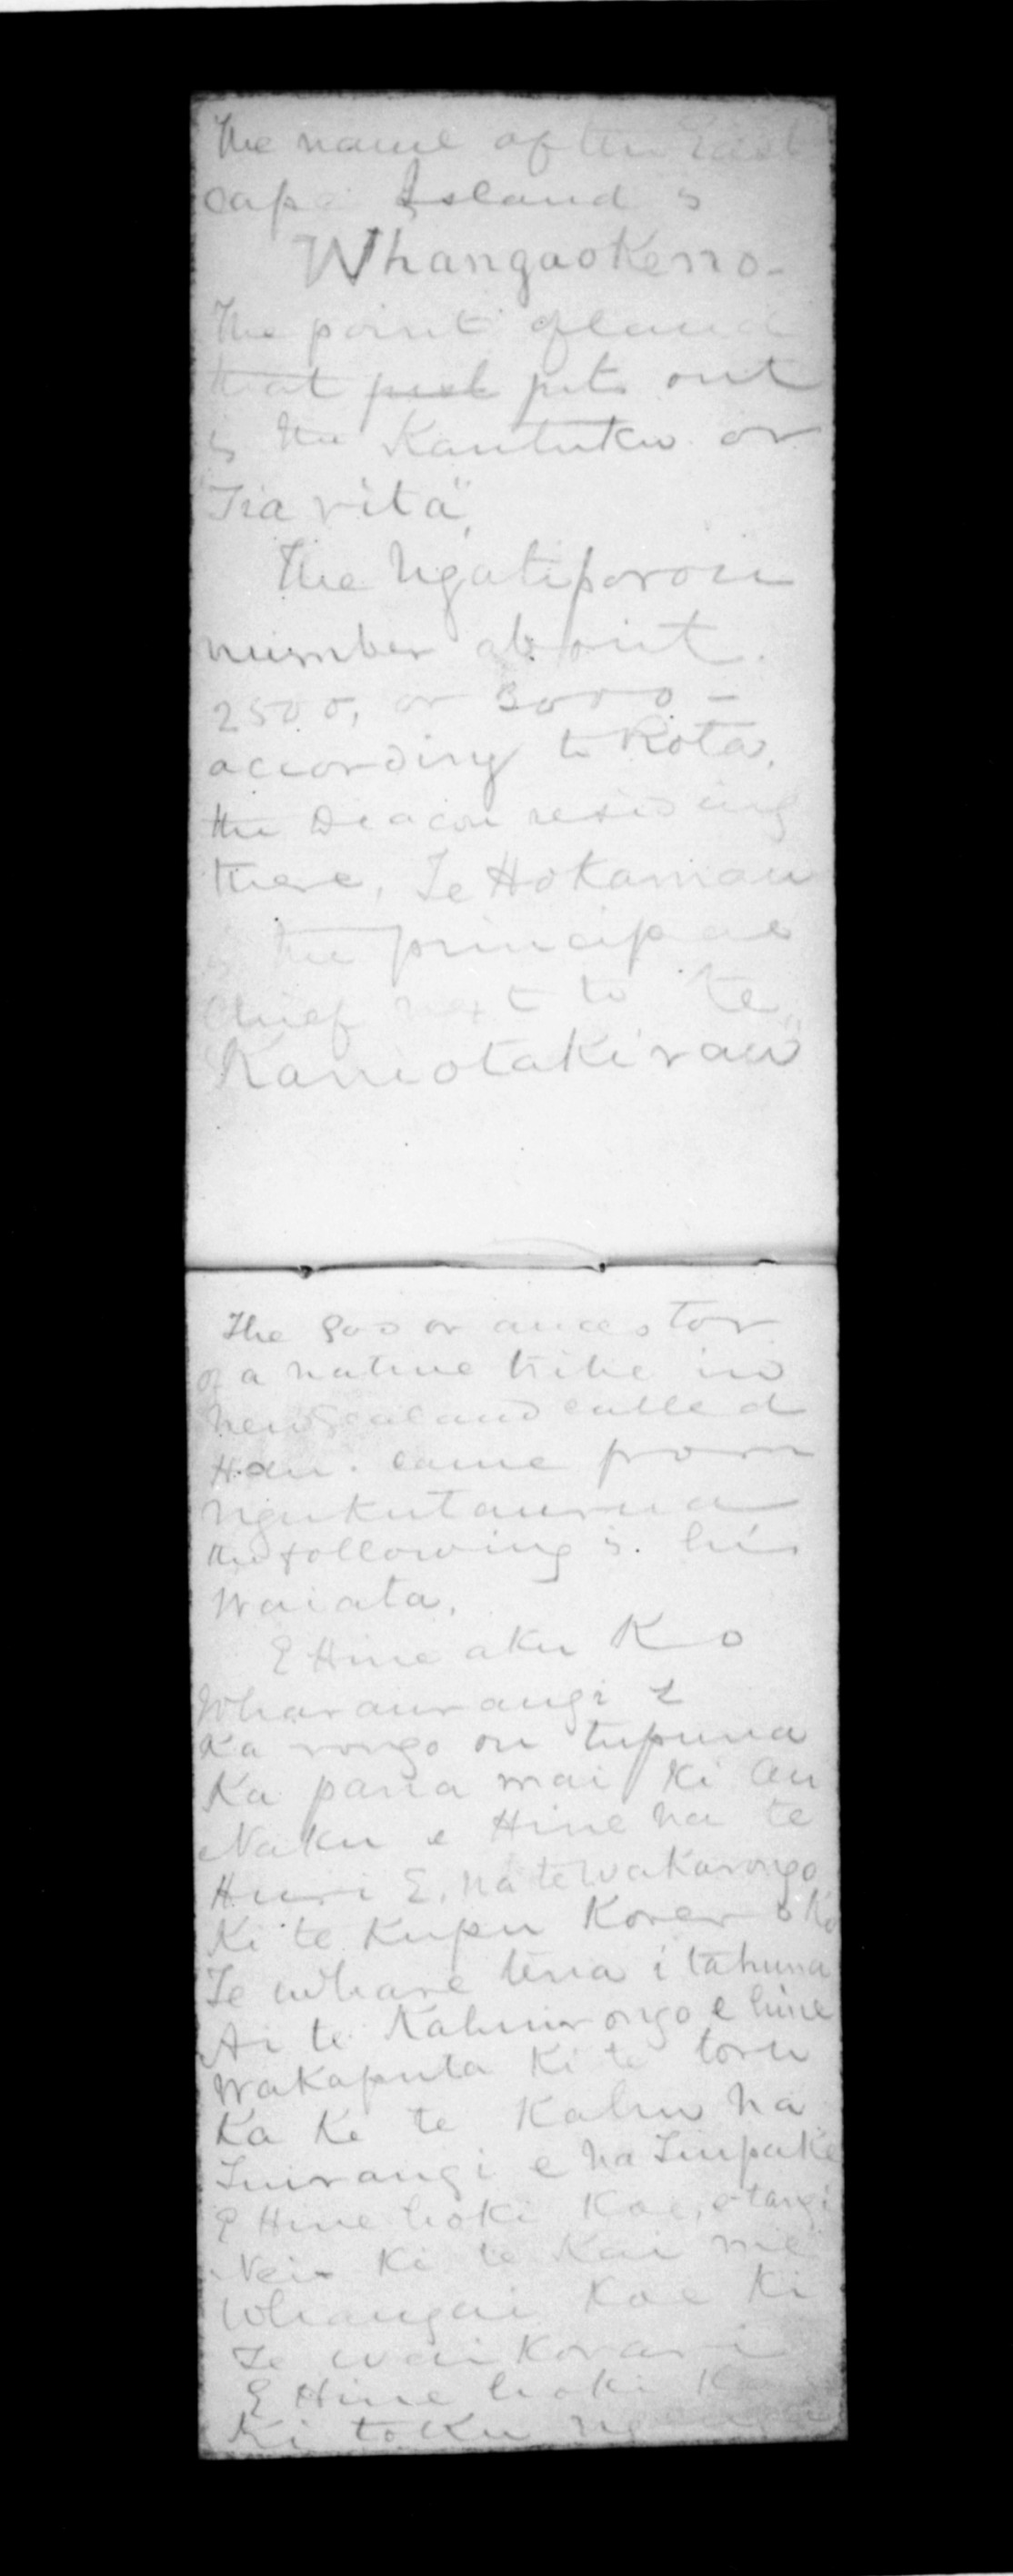 The name of the East
cape Island is
Whangaokeno-
The point of land
that just juts out
is the Kautuku or
"Tia rita",
The Ngatiporou
number about
2500, or 3000 -
according to Rota,
the Deacon residing
there, Te Hokamau
is the principal
Chief next to "te
Kaniotakirau"
The god or ancestor
of a native tribe in
new Zealand called
Hau. came from
Ngukutaurua
the following is. his
Waiata.
E Hine aku Ko
Wharaurangi E
Ka rongo ou tupuna
Ka pana mai ki au
Naku e Hine na te
Huri E, na te wakarongo
Ki te Kupu Korero Ko
Te whare tena i tahuna
Ai te Kahurorongo e hine
Wakaputa Ki te toru
Ka Ke te Kahu na
Tuirangi e na Tuupake
E Hine hoki Koe, e tangi
Nei Ki te Kai me
Whangai Koe Ki
Te wai Korari
E Hine hoki
Ki toku